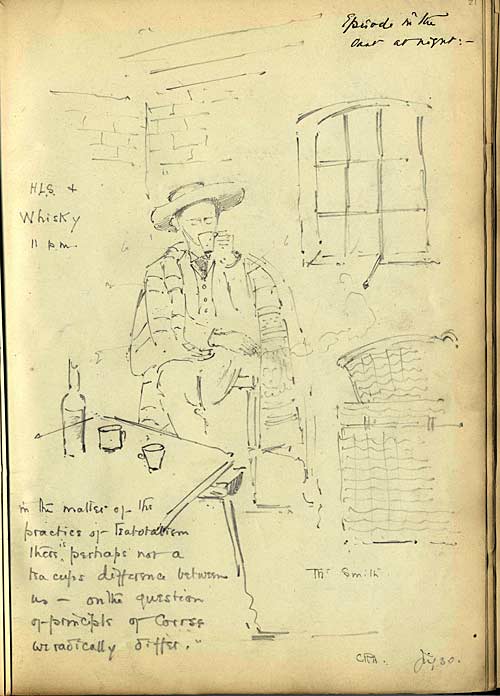 21
Episode in the
Oast at night:-
HLS +
Whisky
11 p.m.
in the matter of the
practice of Teatotalism
there's "perhaps not a
tea cups difference between
us – on the question
of principle of course
we radically differ."
Smith
CRA.
July 30.